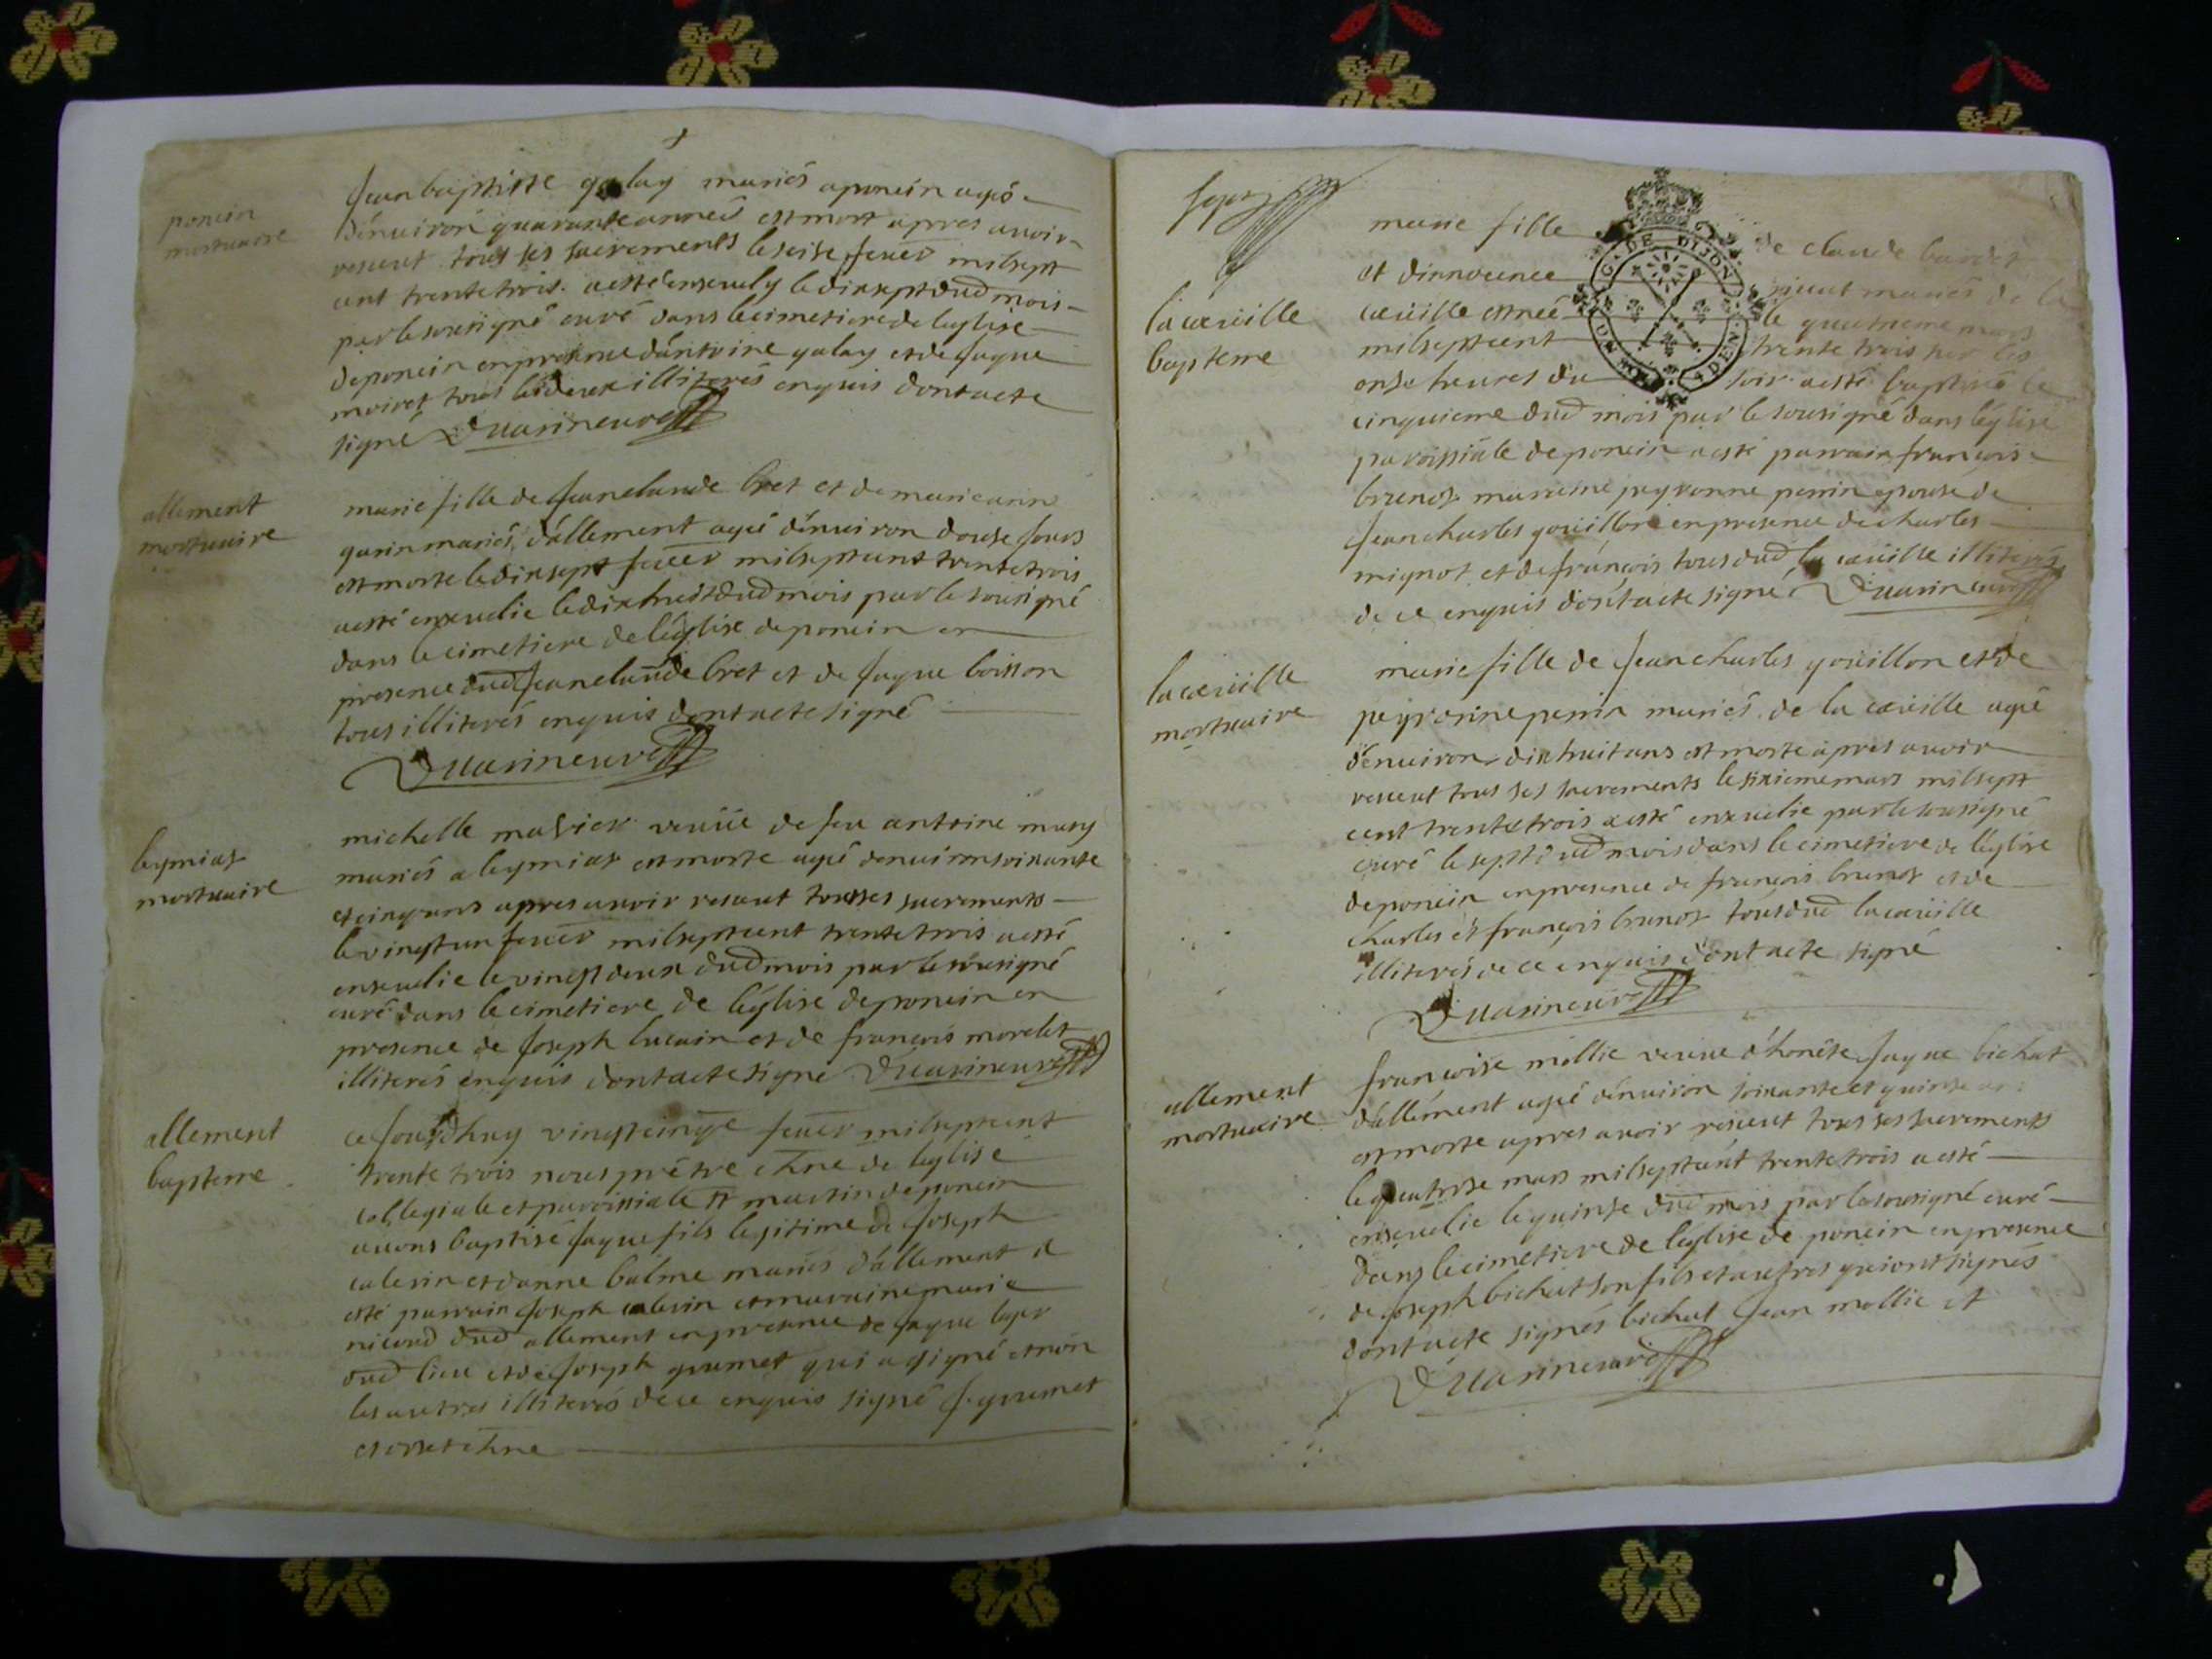 poncin
mortuaire
Jean baptiste galay mariés a poncin agés
d'enuiron quarante années est mort apres auoir
receut tous ses sacrements le seise feuer milsept
cent trente trois. a esté enseuely le dixsept dud mois
par le sousigné curé dans le cimetiere de leglise
de poncin en presence d'antoine galay et de jaque
moiret tous les deux illiterés enquis dont acte
signé Duarin curé
allement
mortuaire
marie fille de jean claude bret et de marie anne
garin mariés d'allement agé d'enuiron douse jours
est morte le dixsept feuer milseptcent trente trois
a esté enseuelie le dixhuit dud mois par le sousigné
dans le cimetiere de léglise de poncin en
presence dud jean claude bret et de jaque boisson
tous illiterés enquis dont acte signé
Duarin curé
leymiat
mortuaire
michelle veuüe de feu antoine mary
mariés a leymiat est morte agé denuiron soixante
et cinq ans apres auoir receut tous ses sacrements
le vingt un feuer milseptcent trente trois a esté
enseuelie le vingt deux dud mois par le sousigné
curé dans le cimetiere de léglise de poncin en
presence de joseph lucain et de françois morelet
illiterés enquis dont acte signé Duarin curé
allement
bapteme
ce jourdhuy vingt cinqe feuer milseptcent
trente trois nous prêtre chne de leglise
collegiale et paroissiale st martin de poncin
auons baptisé jaque fils legitime de joseph
caleuin et danne balme mariés d'allement a
esté parrain joseph caleuin et maraine marie
nicoud dud allement en presence de jaque
dud lieu et de joseph grumet qui a signé et non
les autres illiterés de ce enquis signé j. grumet
et orset chne
sept
la cœuille
bapteme
marie fille de claude bardet
et dinnocence mariés de la
cœuille est née le quatrieme mars
milseptcent trente trois sur les
onse heures du soir a esté baptisée le
cinquieme dud mois par le sousigné dans léglise
paroissiale de poncin a esté parrain françois
brunot maraine peyronne perrin epouse de
jean charles goüillon en presence de charles
mignot et de françois tous dud la cœuille illiterés
de ce enquis dont acte signé Duarin curé
la cœuille
mortuaire
marie fille de jean charles goüillon et de
peyronne perrin mariés de la cœuille agé
d'enuiron dixhuit ans est morte apres auoir
receut tous ses sacrements le sixieme mars milsept
cent trente trois a esté enseuelie par le sousigné
curé le sept dud mois dans le cimetiere de léglise
de poncin en presence de françois brunot et de
charles et françois brunot tous dud la cœuille
illiterés de ce enquis dont acte signé
Duarin curé
allement
mortuaire
françoise mollie veuue d'honéte jaque bichat
d'allement agé d'enuiron soixante et quinse ans
est morte apres auoir receut tous ses sacrements
le quatorse mars milseptcent trente trois a esté
enseuelie le quinse dud mois par le sousigné curé
dans le cimetiere de léglise de poncin en presence
de joseph bichat son fils et autres qui ont signés
dont acte signés bichat jean mollie et
Duarin curé